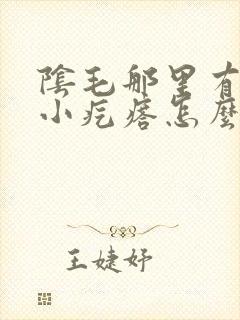 陰毛那里有
小疙瘩怎麼
王婕妤